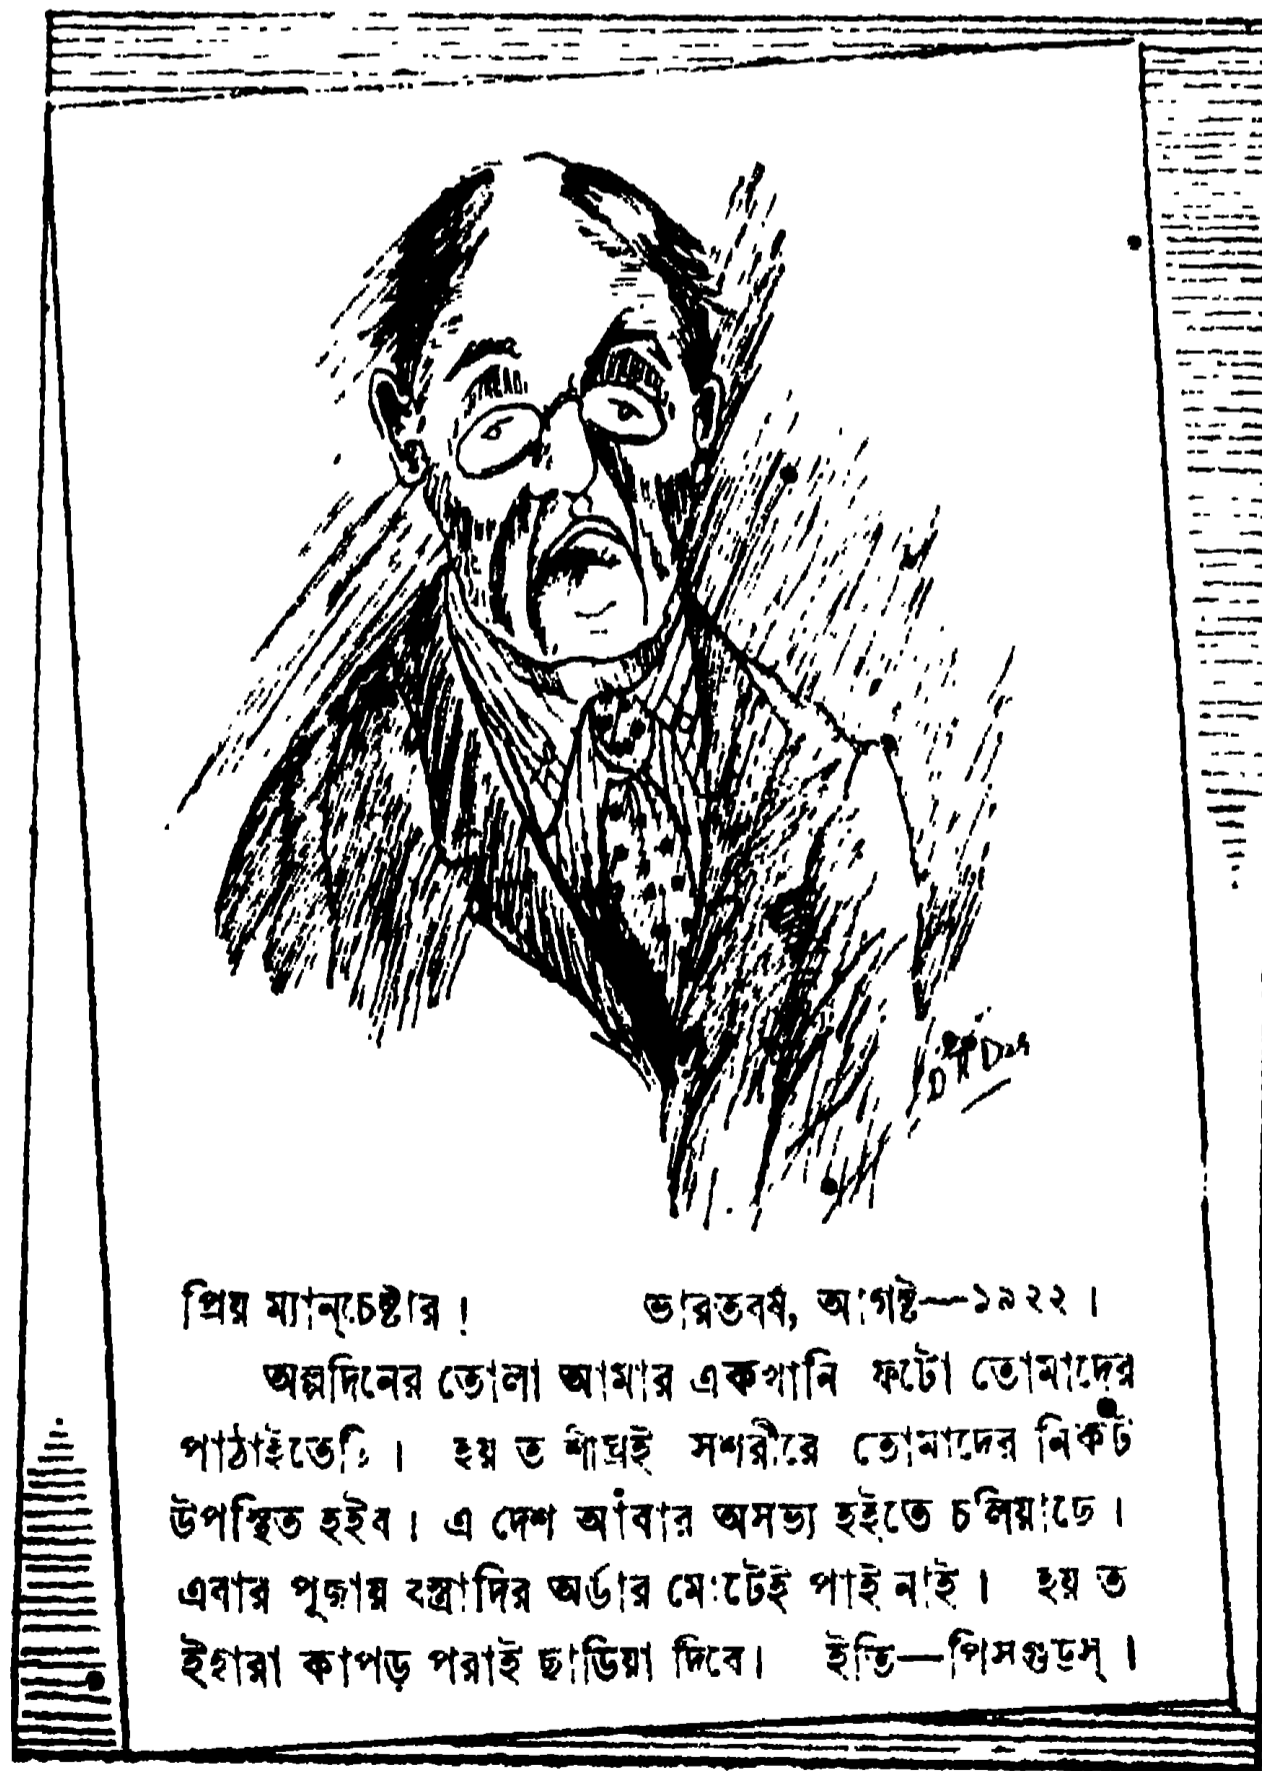 প্রিয় ম্যান্‌চেষ্টার! ভারতবর্ষ, আগষ্ট—১৯২২।
অল্পদিনের তোলা আমার একখানি ফটো তোমাদের
পাঠাইতেছি। হয় ত শীঘ্রই সশরীরে তোমাদের নিকট
উপস্থিত হইব। এ দেশ আবার অসভ্য হইতে চলিয়াছে।
এবার পূজায় বস্ত্রাদির অর্ডার মোটেই পাই নাই। হয় ত
ইহারা কাপড় পরাই ছাড়িয়া দিবে। ইতি—পিসগুড্‌স্।